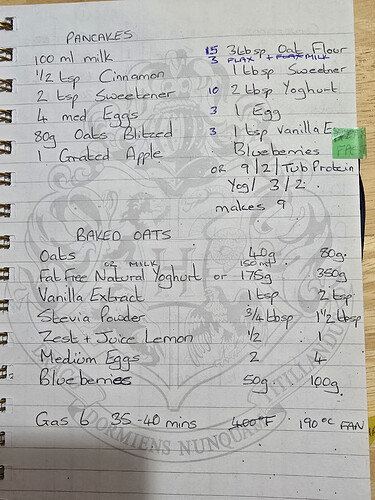 PANCAKES
100 ml milk
1/2 tsp Cinnamon
2 tsp Sweetener
4 med Eggs
80g Oats Blitzed
1 Grated Apple
15 3tbsp Oat Flour
3 FLAX + FLAX MILK
1 tbsp Sweetner
10 2 tbsp Yoghurt
3 1 Egg
3 1 tsp Vanilla E
Blueberries
OR 9/2/Tub Protein
Yog/ 3/2.
makes 9
BAKED OATS
Oats 40g 80g.
OR MILK 150ml
Fat Free Natural Yoghurt or 175g 350g
Vanilla Extract 1 tsp 2 tsp
Stevia Powder 3/4 tbsp 1 1/2 tbsp
Zest + Juice Lemon 1/2 1
Medium Eggs 2 4
Blueberries 50g. 100g.
Gas 6 35-40 mins 400°F 190°C FAN
DORMIENS NUNQUAM TITILLANDUS